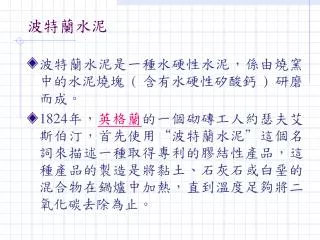 波特蘭水泥
波特蘭水泥是一種水硬性水泥，係由燒窯
中的水泥燒塊 ( 含有水硬性矽酸鈣 ) 研磨
而成。
1824年，英格蘭的一個砌磚工人約瑟夫艾
斯伯汀，首先使用“波特蘭水泥”這個名
詞來描述一種取得專利的膠結性產品，這
種產品的製造是將黏土、石灰石或白堊的
混合物在鍋爐中加熱，直到溫度足夠將二
氧化碳去除為止。